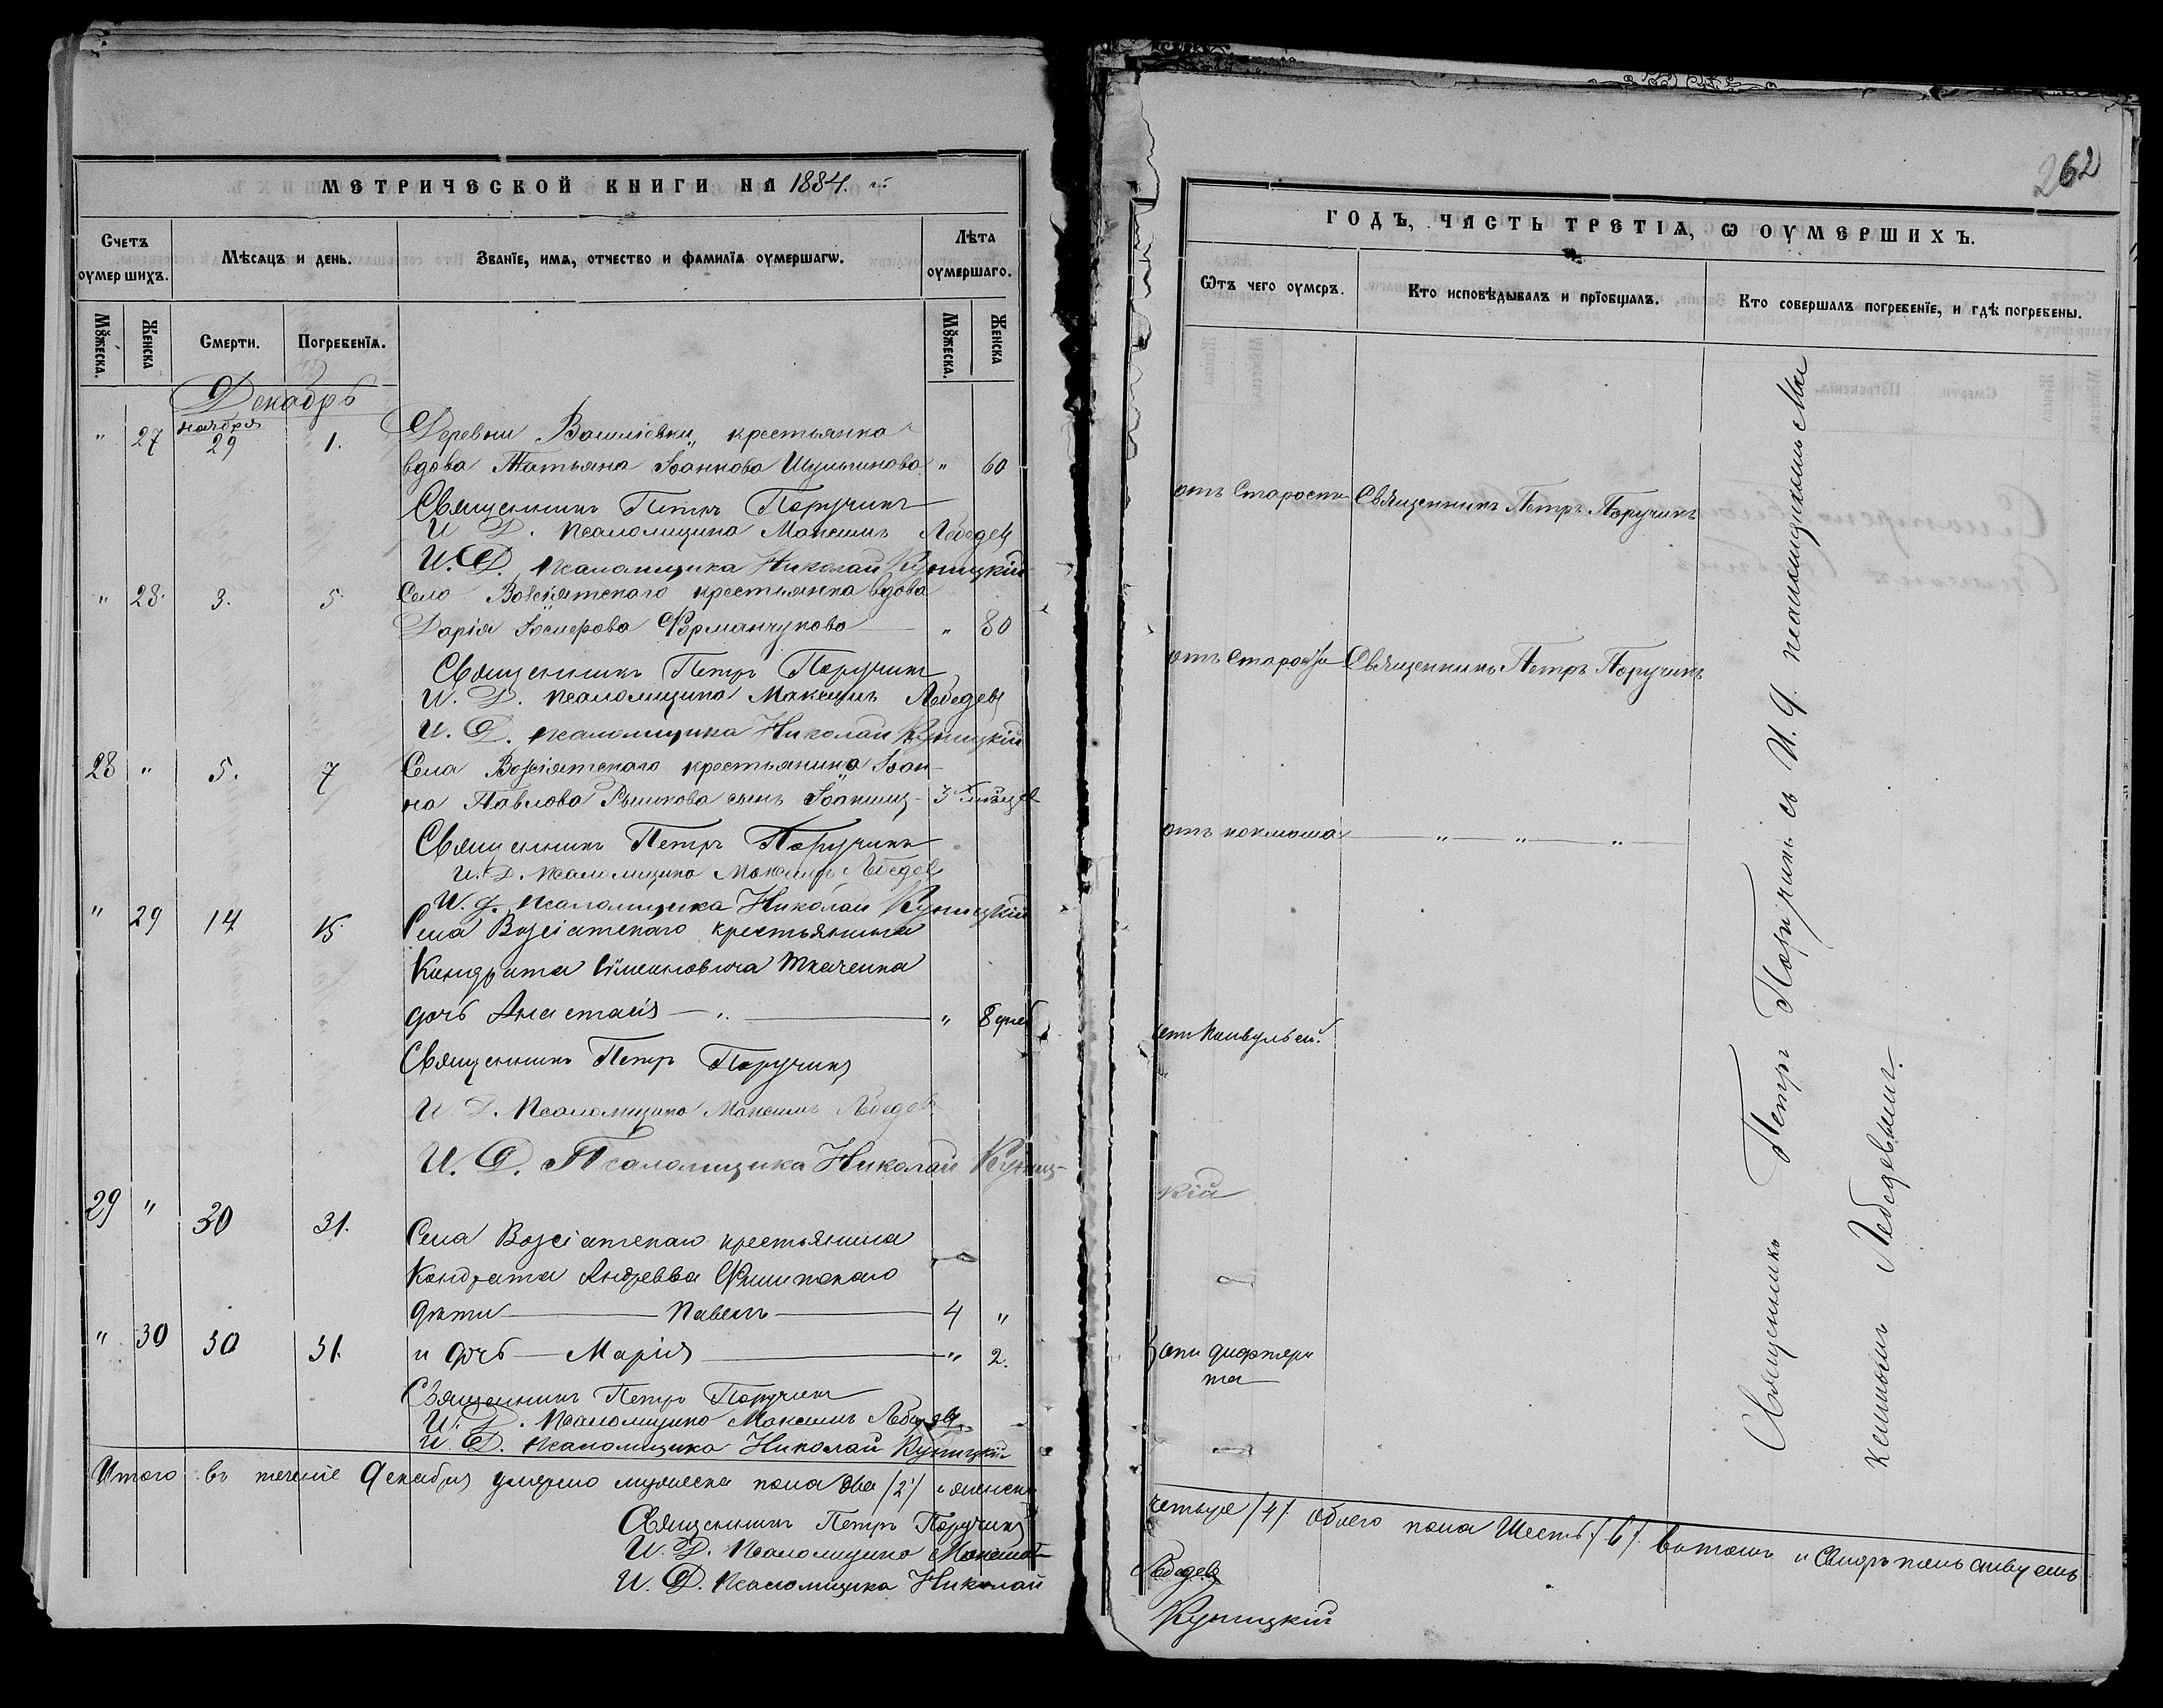 МЕТРИЧЕСКОЙ КНИГИ НА 1884. г.
Счетъ оумершихъ.
Мѣсяцъ и день.
Званїе, имѧ, отчество и фамилїѧ оумершагѡ.
Лѣта оумершаго.
Мꙋжеска.
Женска
Смерти.
Погребенїѧ.
Мꙋжеска.
Женска
Декабрь
" 27 ноября 29 1. Деревни Василіевки крестьянка
вдова Татьяна Іванкова " 60
Священникъ Петръ Поручикъ
И. Д. Псаломщика Максимъ Лебедевъ
И. Д. Псаломщика Николай Куницкій
" 28. 3. 5 Села Возсіятскаго крестьянка вдова
Дарія Іосифова Фурманчукова " 80
Священникъ Петръ Поручикъ
И. Д. Псаломщика Максимъ Лебедевъ
И. Д. Псаломщика Николай Куницкій
28 " 5. 7 Села Возсіятскаго крестьянина Іоан-
на Павлова сынъ Іоакимъ 3 мѣсяц
Священникъ Петръ Поручикъ
И. Д. Псаломщика Максимъ Лебедев
И. Д. Псаломщика Николай Куницкій
" 29 14 15 Села Возсіятскаго крестьянина
Кондрата Симеоновича Ткаченка
дочь Анастасія " 8 дней
Священникъ Петръ Поручикъ
И. Д. Псаломщика Максимъ Лебедев
И. Д. Псаломщика Николай Куниц-
29 " 30 31. Села Возсіятскаго крестьянина
Кондрата Андреева
дѣти Павелъ 4 "
" 30 30 31. и дочь Марія " 2.
Священникъ Петръ Поручикъ
И. Д. Псаломщика Максимъ Лебедевъ
И. Д. Псаломщика Николай Куницкій
Итого въ теченіе Декабря умерло мужеска пола два /2/ и женска
Священникъ Петръ Поручикъ
И. Д. Псаломщика Максимъ
И. Д. Псаломщика Николай
262
ГОДЪ, ЧАСТЬ ТРЕТІѦ, Ѡ ОУМЕРШИХЪ.
Ѿтъ чего оумеръ.
Кто исповѣдывалъ и прїобщалъ.
Кто совершалъ погребенїе, и гдѣ погребены.
отъ Старости Священникъ Петръ Поручикъ
отъ Старости Священникъ Петръ Поручикъ
отъ коклюша " " "
отъ Конвульсій.
кій
отъ дифтери
та
Священникъ Петръ Поручикъ съ И. Д. псаломщикомъ Мак
симомъ Лебедевымъ.
четыре /4/ Обоего пола Шесть /6/ въ томъ и Свидѣтельствуемъ
Лебедевъ
Куницкій